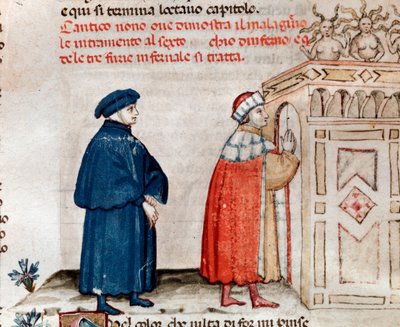 e qui si termina loctauo capitolo.
Cantico nono oue dimostra il malageuo
le intramento al sexto chio dinferno e q
dele tre furie infernale si tratta.
Quel color che uilta di for mi pinse